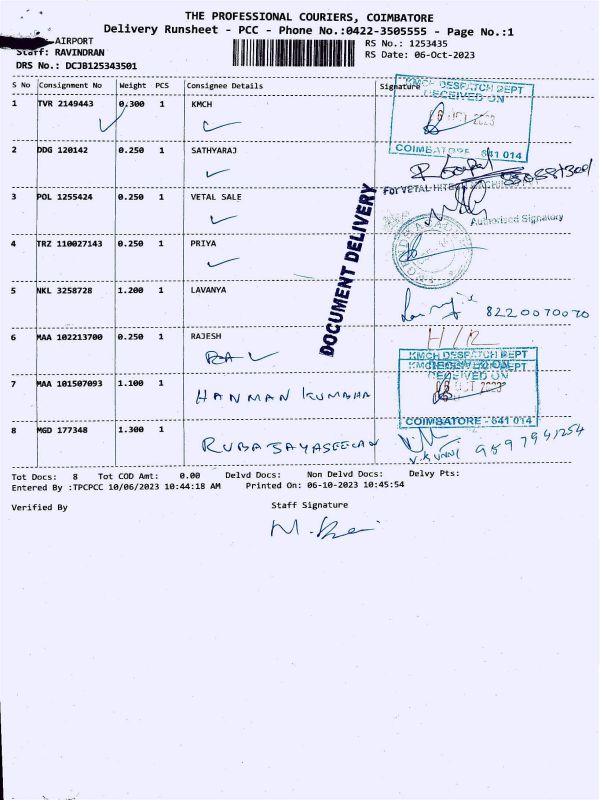 THE PROFESSIONAL COURIERS, COIMBATORE
Delivery Runsheet - PCC - Phone No.:0422-3505555 - Page No.:1
AIRPORT
Staff: RAVINDRAN
DRS No.: DCJB125343501
RS No.: 1253435
RS Date: 06-Oct-2023
S No Consignment No Weight PCS Consignee Details Signature
1 TVR 2149443 0.300 1 KMCH
KMCH DESPATCH DEPT
RECEIVED ON
6 OCT 2023
COIMBATORE - 641 014
2 DDG 120142 0.250 1 SATHYARAJ
3 POL 1255424 0.250 1 VETAL SALE
For VETAL
Authorised Signatory
4 TRZ 110027143 0.250 1 PRIYA
DOCUMENT DELIVERY
5 NKL 3258728 1.200 1 LAVANYA
8220070070
6 MAA 102213700 0.250 1 RAJESH
KMCH DESPATCH DEPT
RECEIVED ON
OCT 2023
COIMBATORE - 641 014
7 MAA 101507093 1.100 1
HANMAN KUMBHA
8 MGD 177348 1.300 1
RUBA JAYASEELAN
V. KUNNI 9897941254
Tot Docs: 8 Tot COD Amt: 0.00 Delvd Docs: Non Delvd Docs: Delvy Pts:
Entered By :TPCPCC 10/06/2023 10:44:18 AM Printed On: 06-10-2023 10:45:54
Verified By Staff Signature